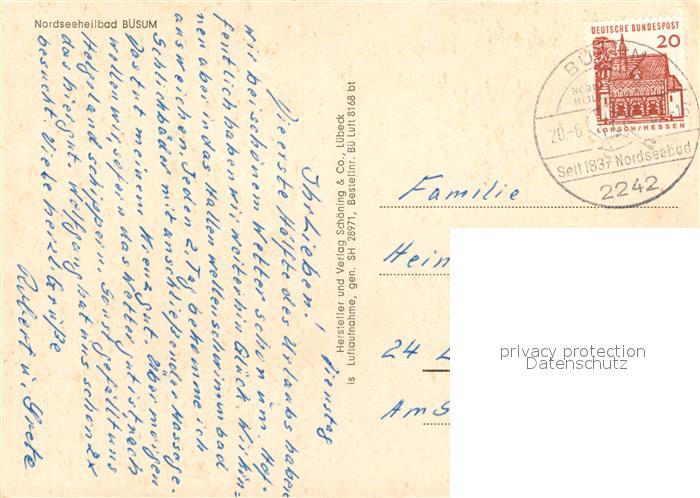 Nordseeheilbad BÜSUM
Dienstag
Ihr Lieben!
Die erste Hälfte des Urlaubs haben
wir bei schönem Wetter schon um. Hof-
fentlich haben wir weiterhin Glück. Wir kön-
nen aber in das Hallenwellenschwimmbad
ausweichen. Jeden 2. Tag bekomme ich
Schlickbäder mit anschließender Massage.
Das tut meinem Kreuz gut. Übermorgen
wollen wir, sofern das Wetter gut ist nach
Helgoland schippern. Sonst gefällt uns
das hier gut. Wolfgang hat uns schon 2x
besucht. Viele herzl. Grüße
Robert u. Grete
Hersteller und Verlag Schöning & Co., Lübeck
is Luftaufnahme, gen. SH 28971, Bestellnr. Bü Luft 8168 bt
DEUTSCHE BUNDESPOST
20
LORSCH/HESSEN
BÜSUM
20.-6
Seit 1837 Nordseebad
2242
Familie
Hein
24 L
Am S
privacy protection
Datenschutz